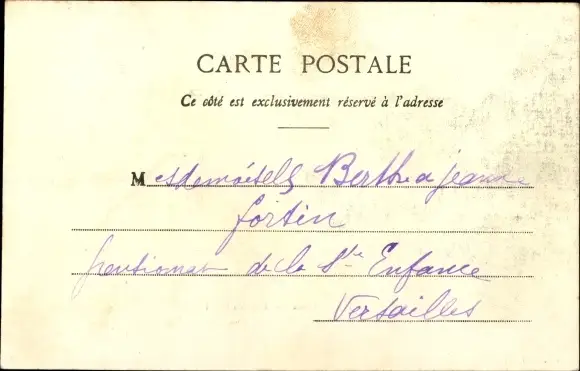 CARTE POSTALE
Ce côté est exclusivement réservé à l'adresse
Mesdemoiselles Berthe et jeanne
fortin
pensionnat de la Ste Enfance
Versailles